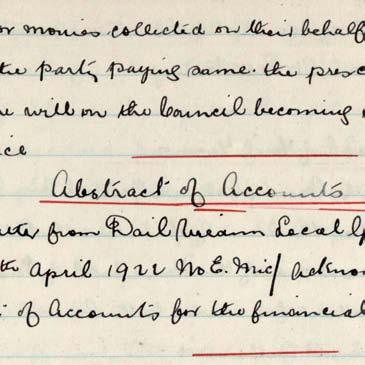 or monies collected on their behalf
the party paying same the pres
e will on the Council becoming
ice
Abstract of Accounts
tter from Dail Eireann Local G
th April 1922 No E. Mic/ ackno
t of Accounts for the financial